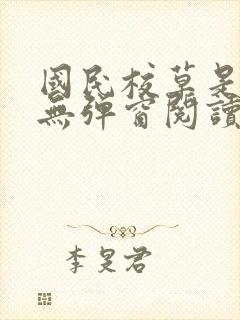 國民校草是
無彈窗閱讀
李旻君